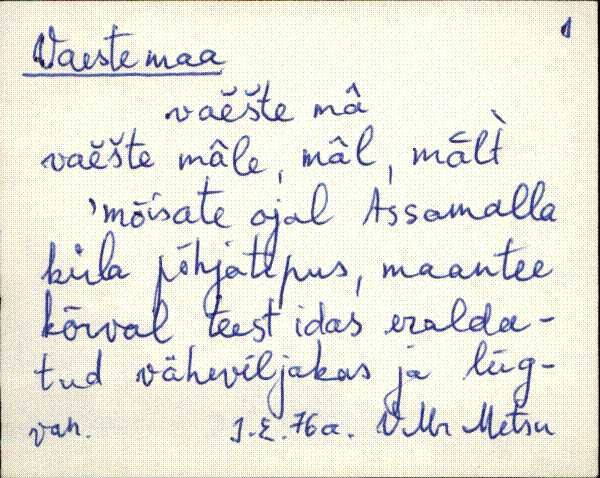 1
Vaestemaa
vaĕšte mâ
vaĕšte mâle, mâl, mālt̀
'mõisate ajal Assamalla
küla põhjatipus, maantee
kõrval teest idas eralda-
tud väheviljakas ja liig-
vah. J.E. 76a. V.Mr Metsu